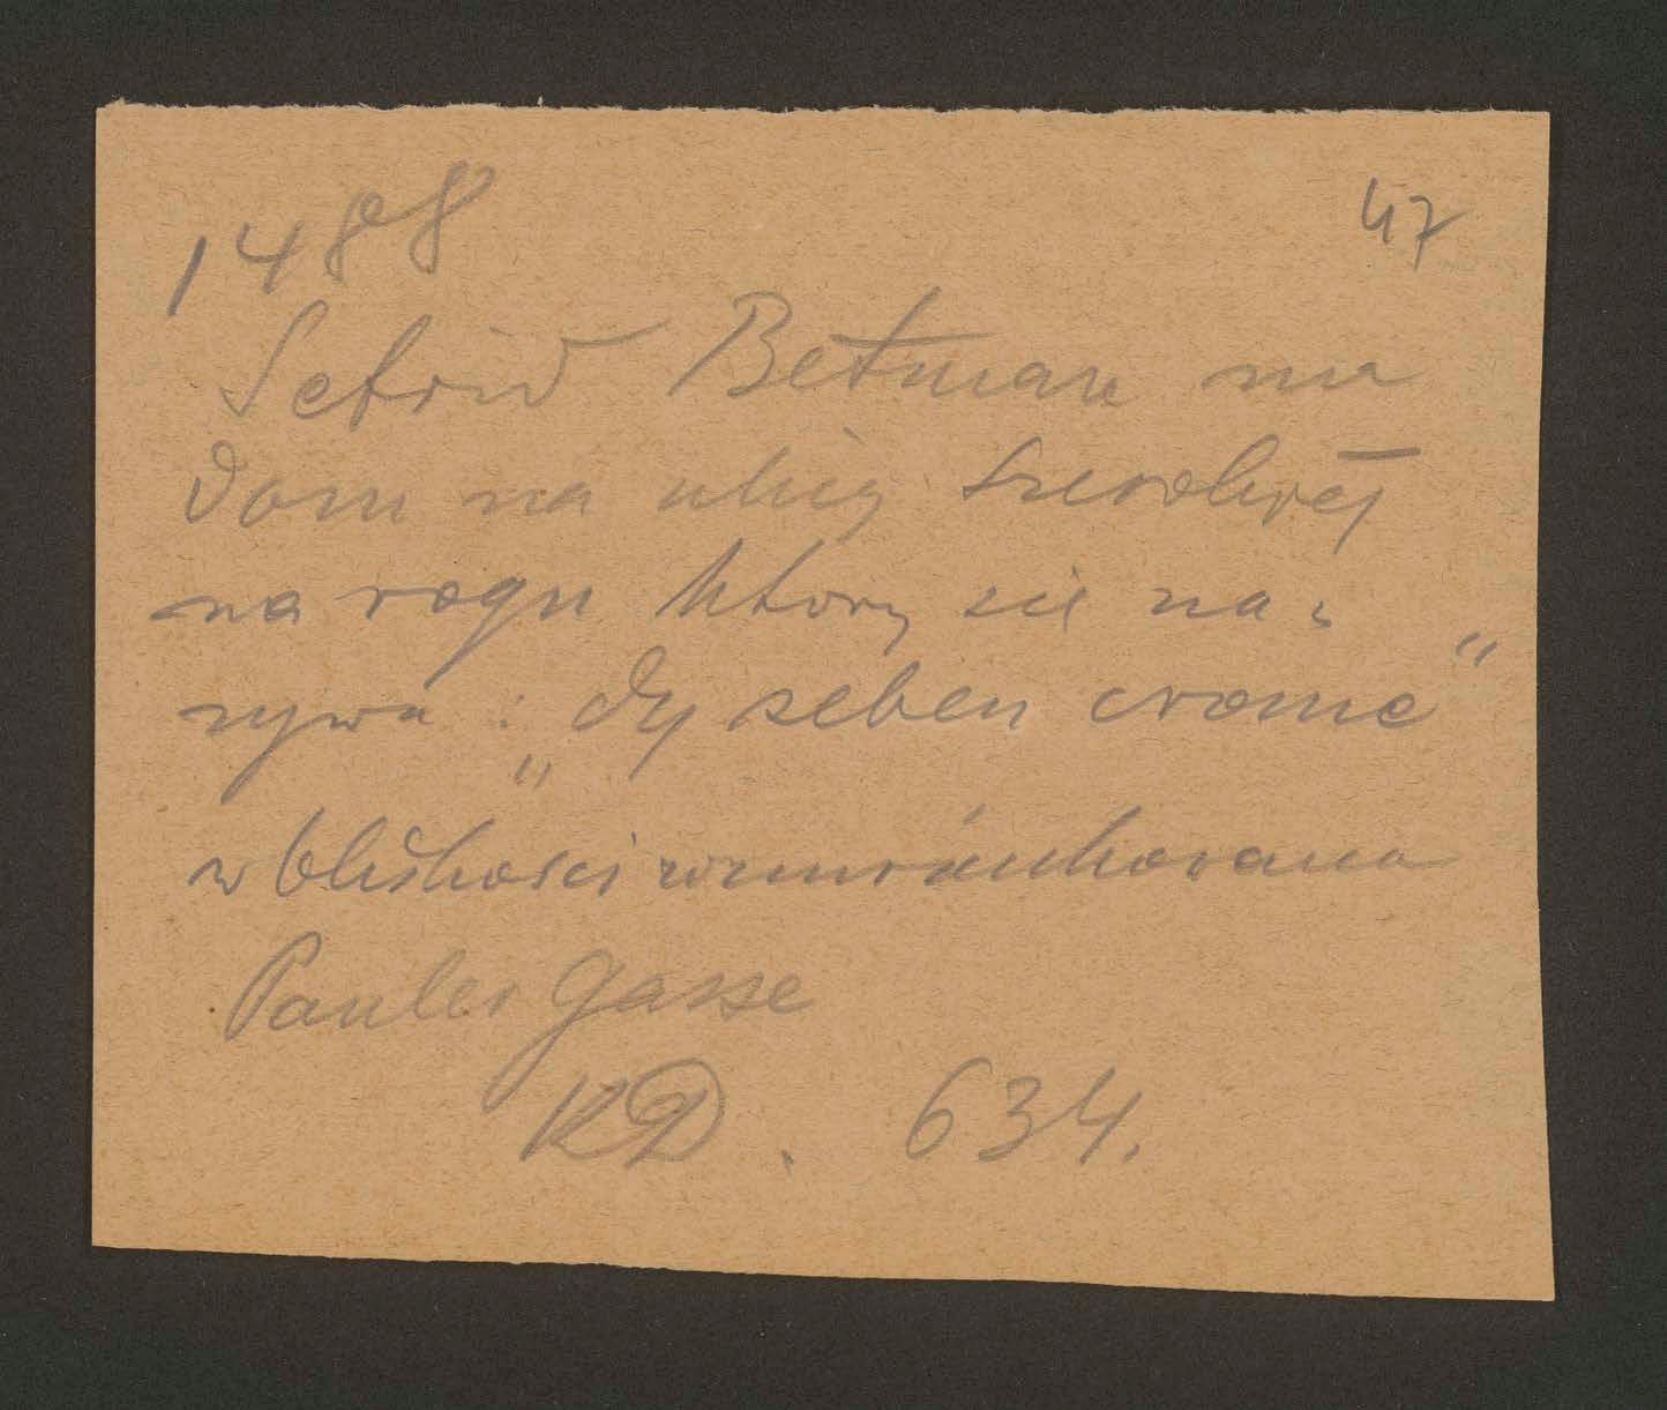 1488
47
Sefrid Betman ma
dom na ulicy Szerokiej
na rogu ktory się na-
zywa : „dy seben crome"
w bliskości
Pauler Gasse
KD. 634.